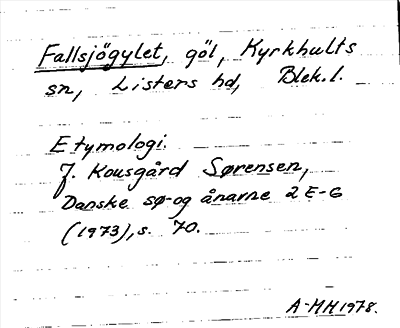 Fallsjögylet, göl, Kyrkhults
sn, Listers hd, Blek.l.
Etymologi.
J. Kousgård Sørensen,
Danske sø- og ånavne 2 E-G
(1973), s. 70.
A-MH 1978.